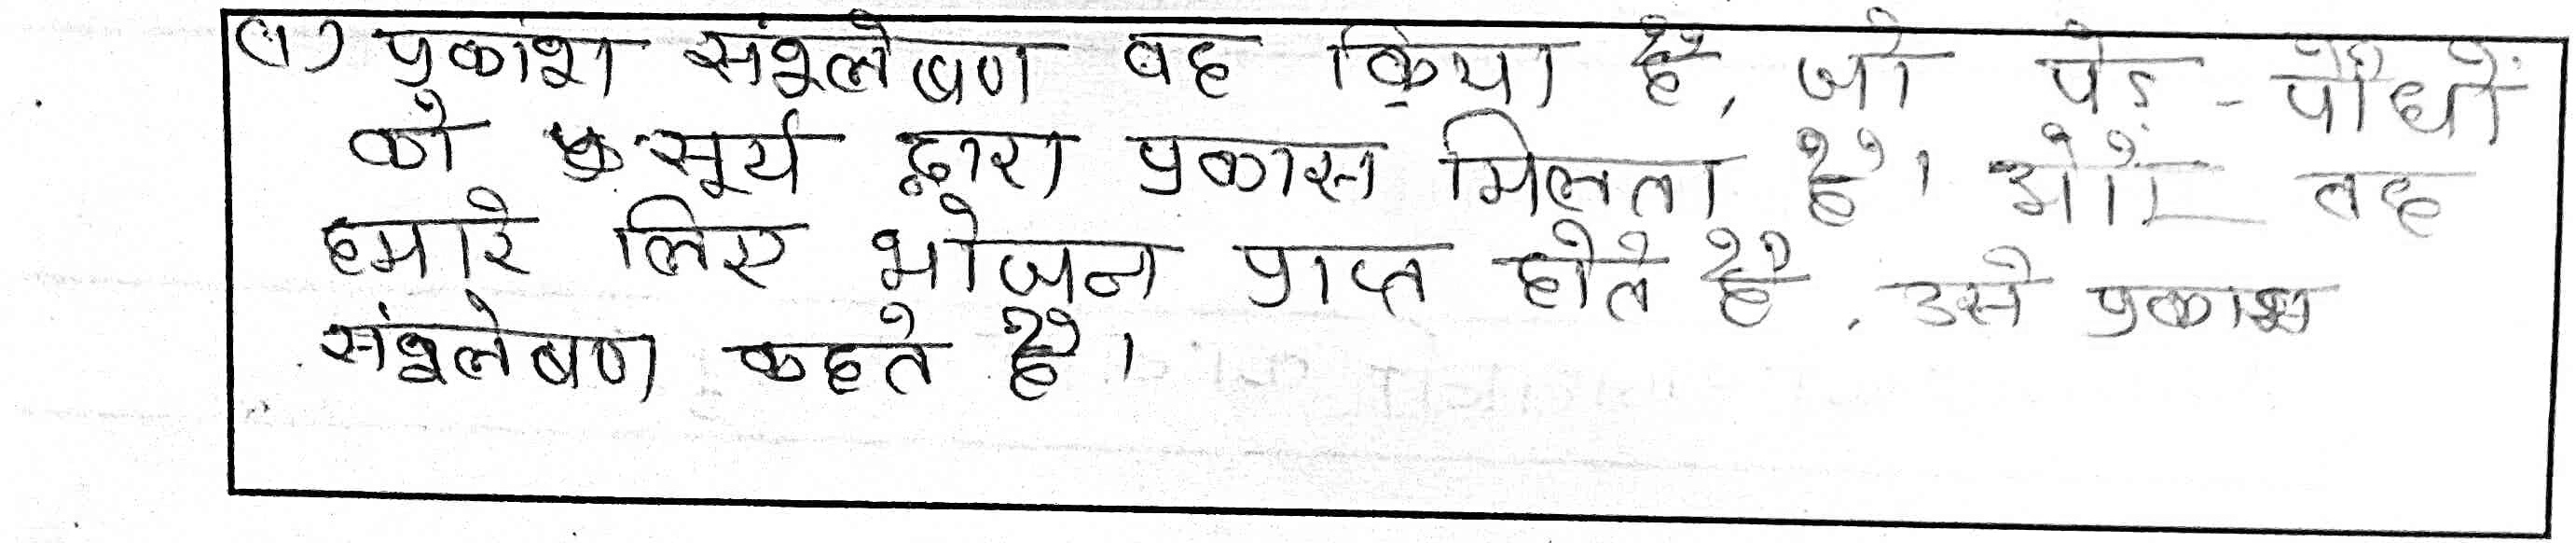 प्रकांश संश्लेषण वह क्रिया है, जो पेड़ - पौधों
को सूर्य द्वारा प्रकास मिलता है। और वह
हमारे लिए भोजन प्राप्त होते है, उसे प्रकाश
संश्लेषण कहते है।